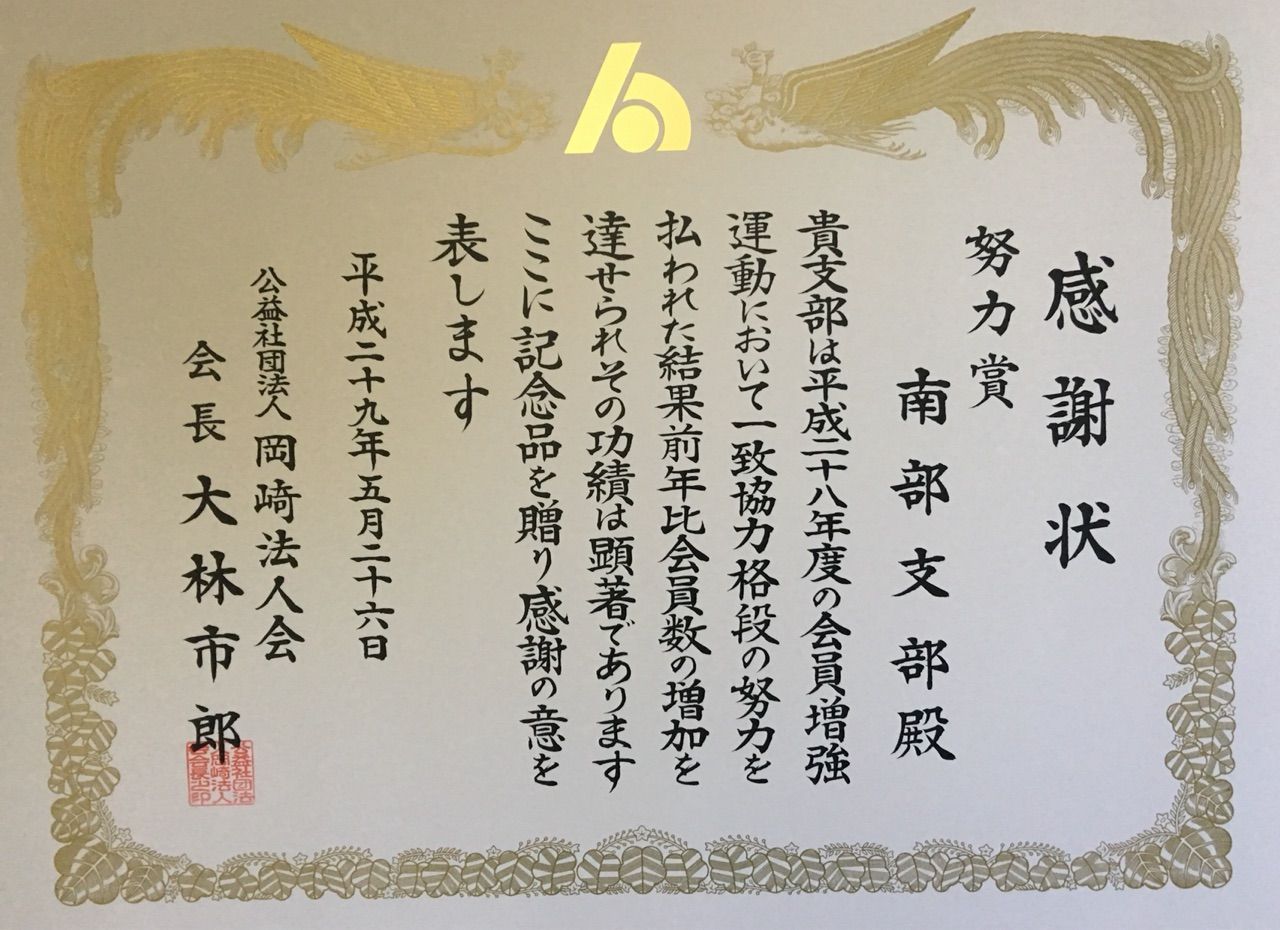 感謝状
努力賞
南部支部殿
貴支部は平成二十八年度の会員増強
運動において一致協力格段の努力を
払われた結果前年比会員数の増加を
達せられその功績は顕著であります
ここに記念品を贈り感謝の意を
表します
平成二十九年五月二十六日
公益社団法人岡崎法人会
会長大林市郎